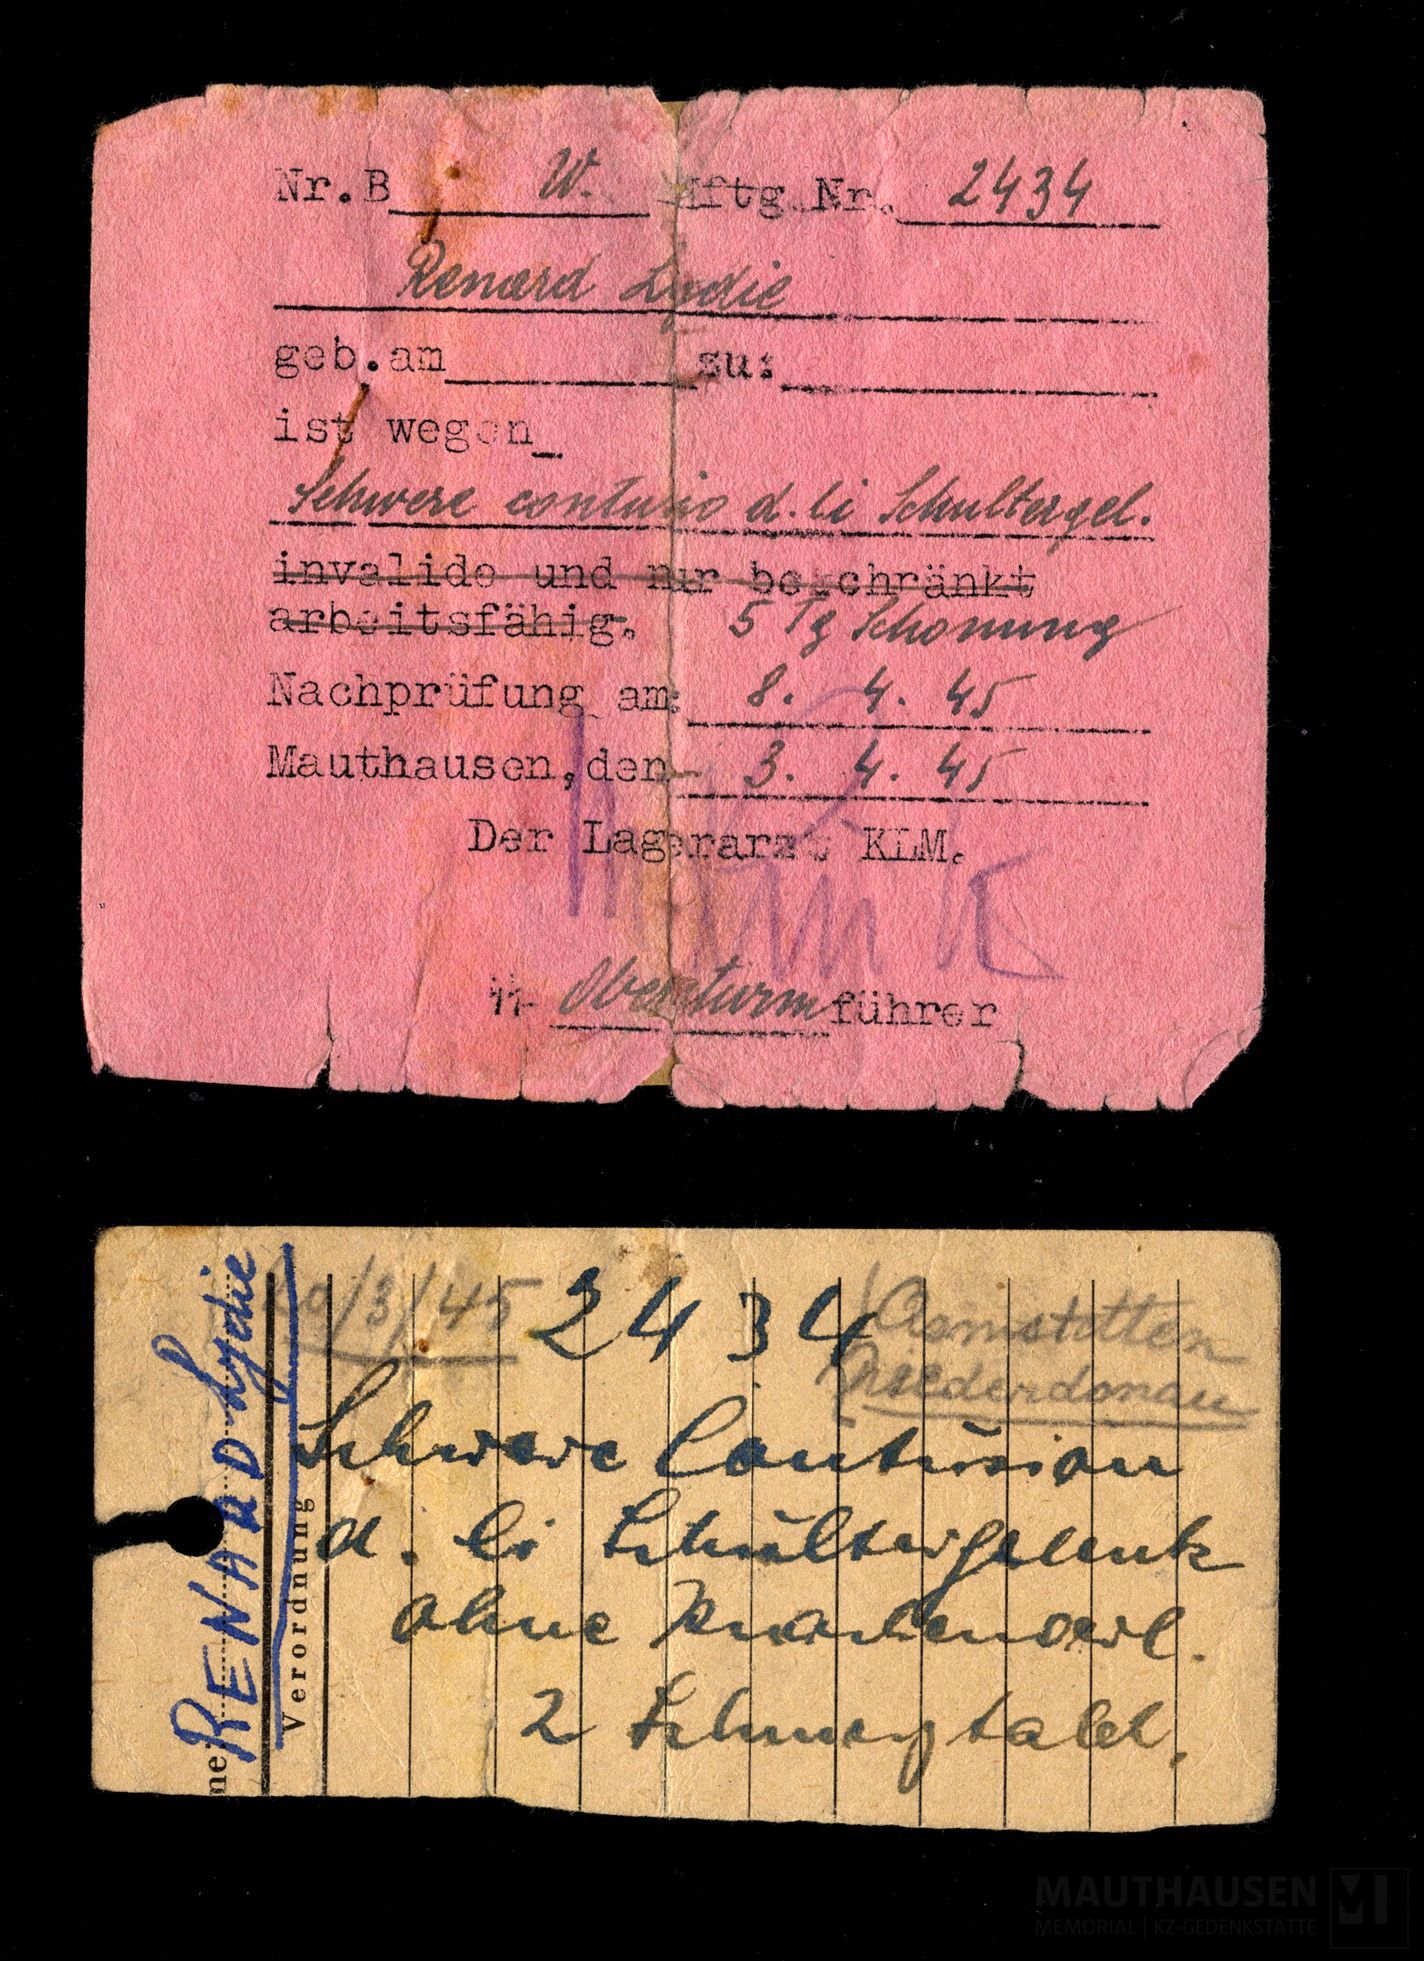 Nr.B W. Hftg.Nr. 2434
Renard Lydie
geb.am zu:
ist wegen
Schwere contusio d. li Schultergel.
invalide und nur beschränkt
arbeitsfähig. 5 Tg Schonung
Nachprüfung am: 8. 4. 45
Mauthausen, den 3. 4. 45
Der Lagerarzt KLM.
SS- Obersturmführer
20/3/45 2434 Amstetten
Niederdonau
Schwere Contusion
d. li Schultergelenk
ohne
2 Schmerztabl.
RENAUD Lydie
me:
Verordnung
MAUTHAUSEN
MEMORIAL | KZ-GEDENKSTÄTTE